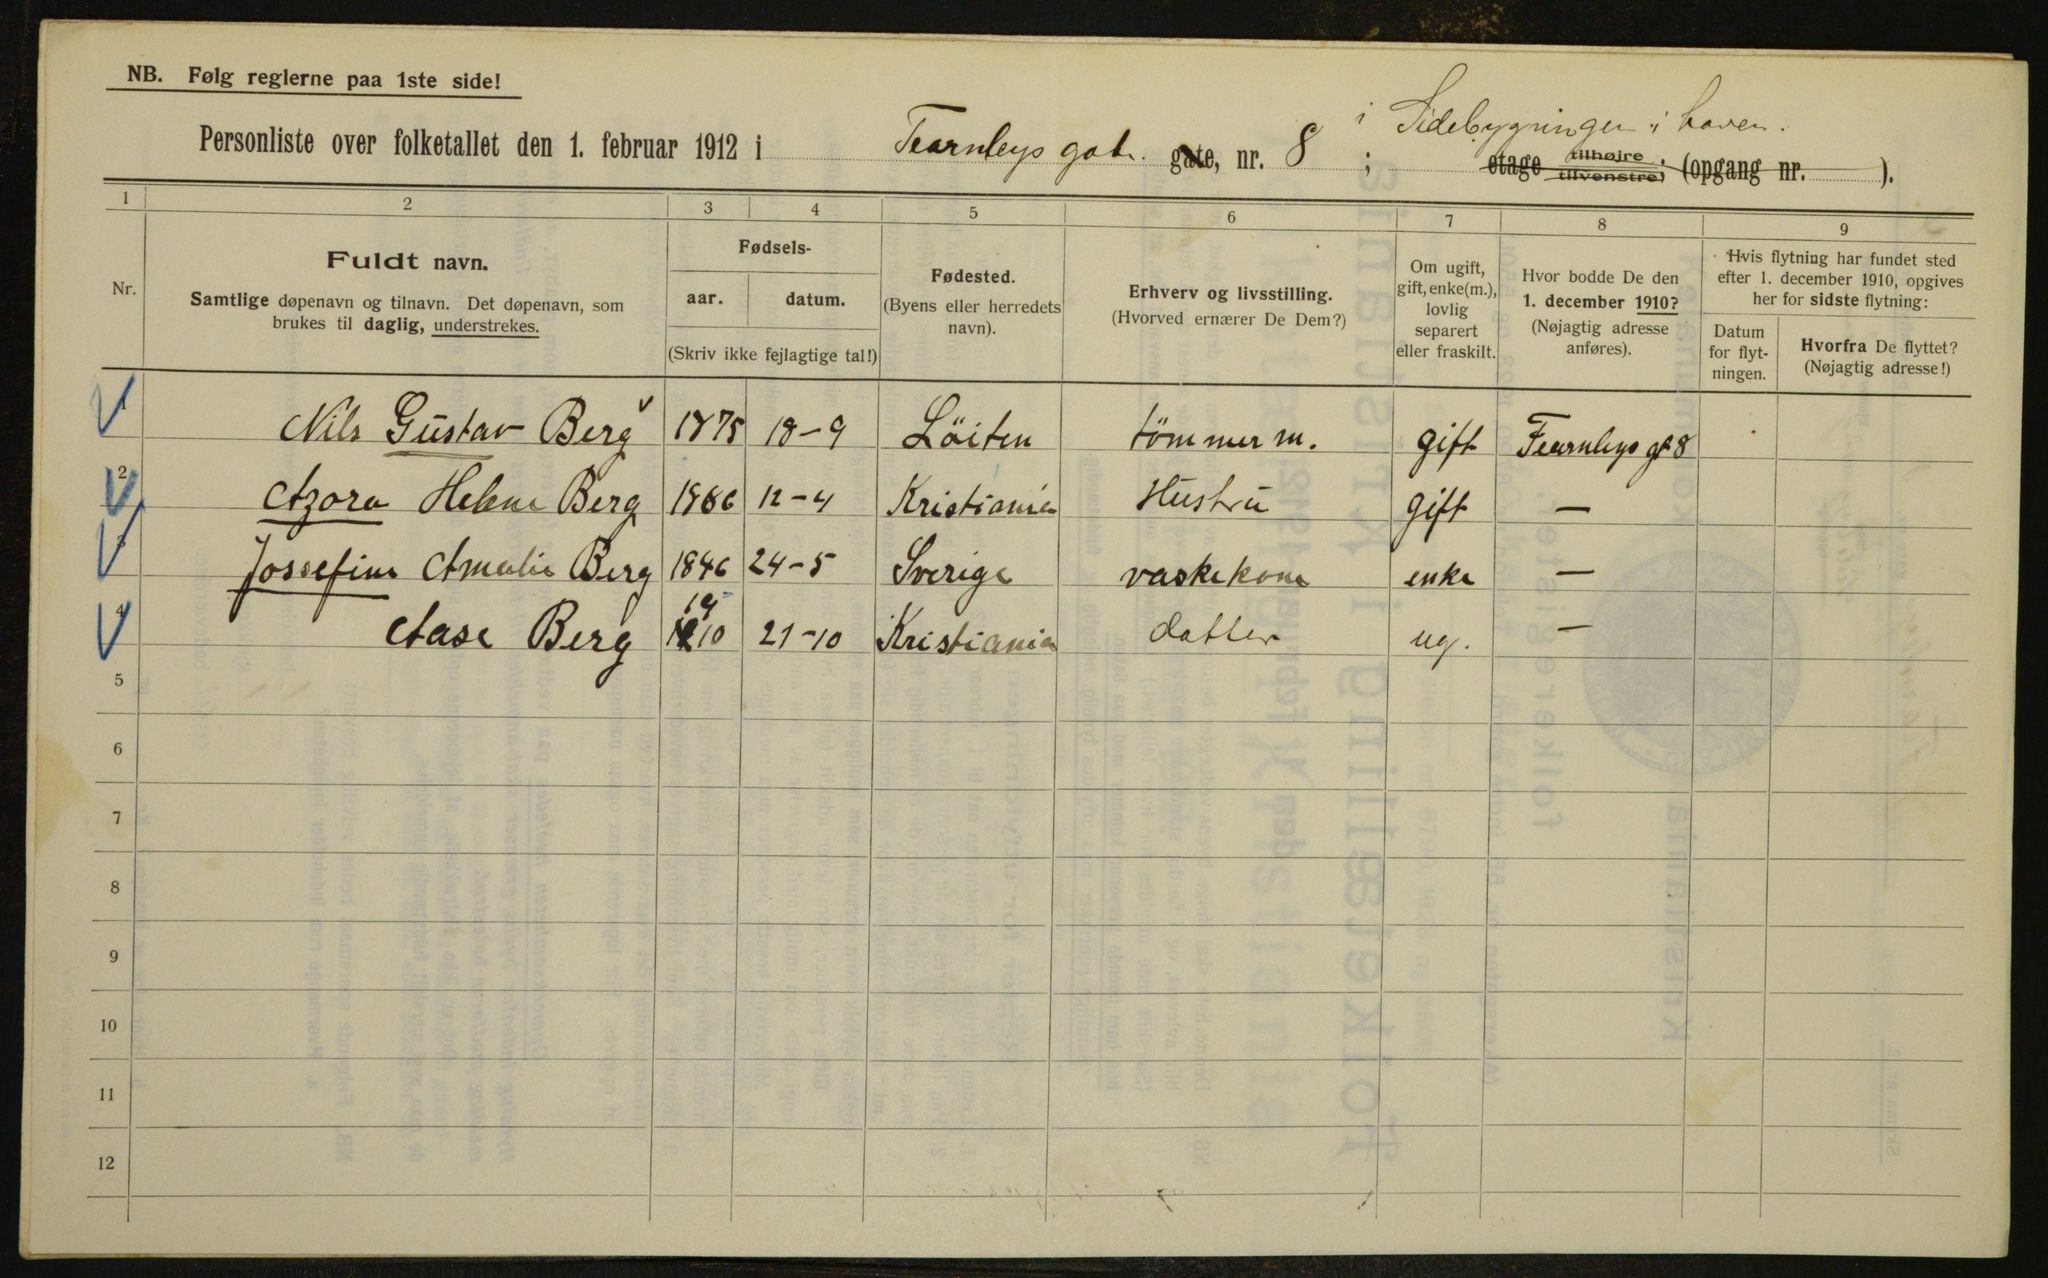 NB. Følg reglerne paa 1ste side!
i Sidebygningen i haven.
Personliste over folketallet den 1. februar 1912 i Fearnleys gate. gate, nr. 8 ; etage tilhøire, tilvenstre, (opgang nr. ).
1 2 3 4 5 6 7 8 9
Nr.
Fuldt navn.
Samtlige døpenavn og tilnavn. Det døpenavn, som
brukes til daglig, understrekes.
Fødsels-
aar. datum.
(Skriv ikke fejlagtige tal!)
Fødested.
(Byens eller herredets
navn).
Erhverv og livsstilling.
(Hvorved ernærer De Dem?)
Om ugift,
gift, enke(m.),
lovlig
separert
eller fraskilt.
Hvor bodde De den
1. december 1910?
(Nøjagtig adresse
anføres).
Hvis flytning har fundet sted
efter 1. december 1910, opgives
her for sidste flytning:
Datum
for flyt-
ningen.
Hvorfra De flyttet?
(Nøjagtig adresse!)
1 Nils Gustav Berg 1875 18-9 Löiten tömmerm. gift Fearnleys gt 8
2 Azora Helene Berg 1886 12-4 Kristiania Hustru gift —
3 Jossefine Amalie Berg 1846 24-5 Sverige vaskekone enke —
4 Aase Berg 1910 21-10 Kristiania datter ug. —
5
6
7
8
9
10
11
12